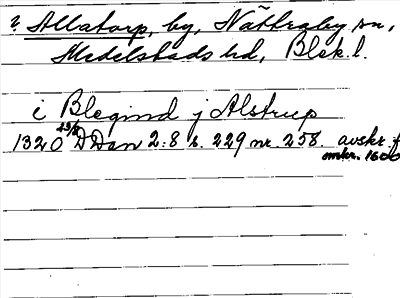 ? Allatorp, by, Nättraby sn,
Medelstads hd, Blek. l.
i Blegind j Alstrup
1320 25/5 DDan 2:8 s. 229 nr. 258. avskr. f
omkr. 1600